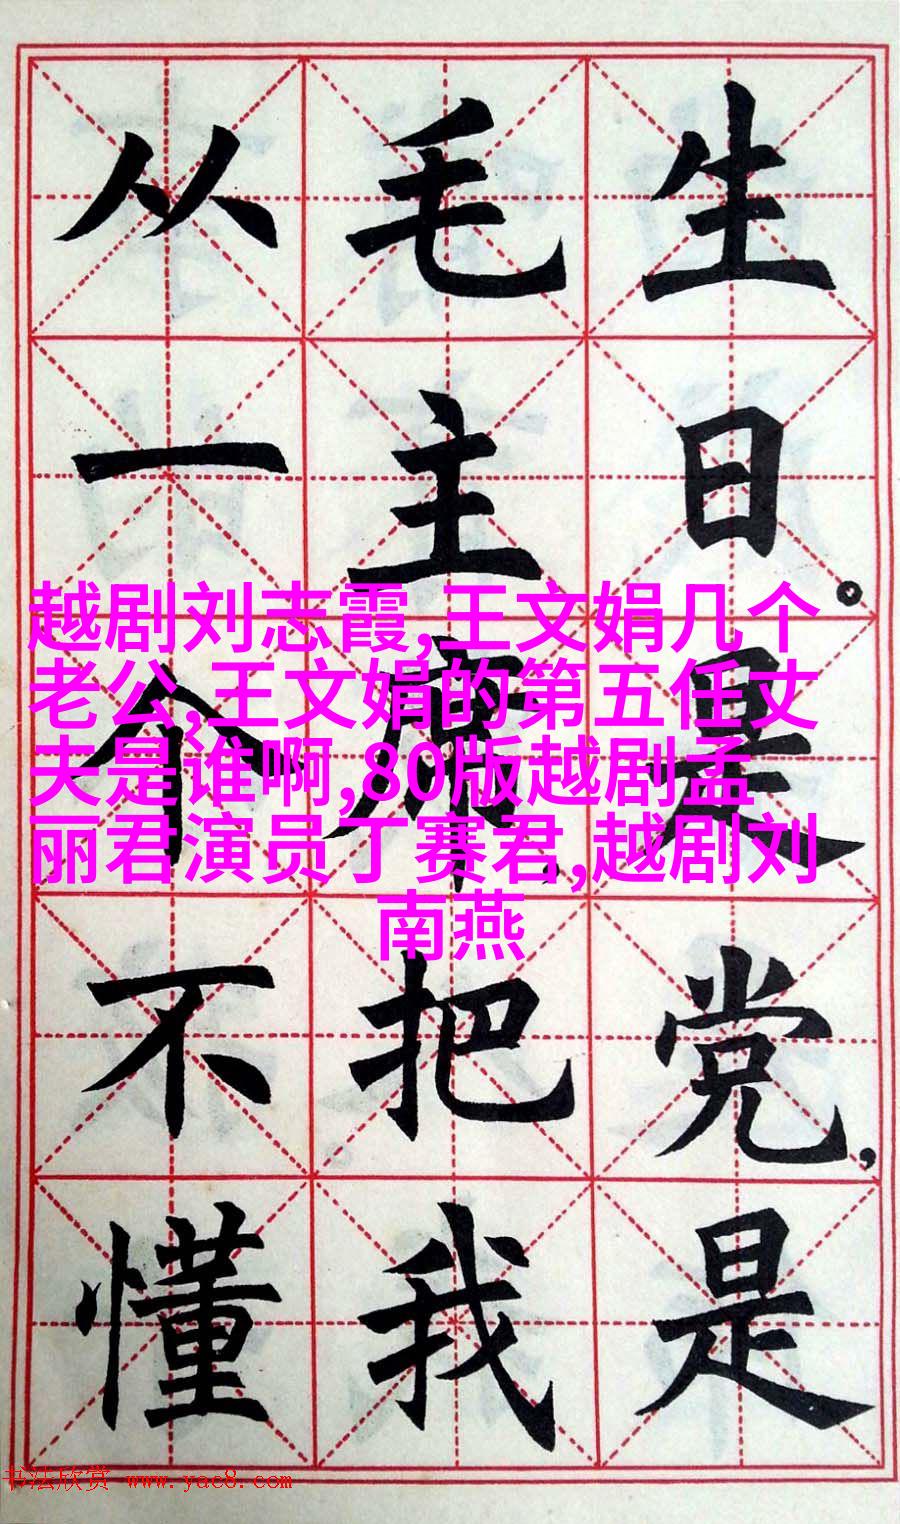 生日。是党,是
毛主席,把我
从一个不懂
越剧刘志霞,王文娟几个
老公,王文娟的第五任丈
夫是谁啊,80版越剧孟
丽君演员丁赛君,越剧刘
南燕
书法欣赏 www.yac8.com